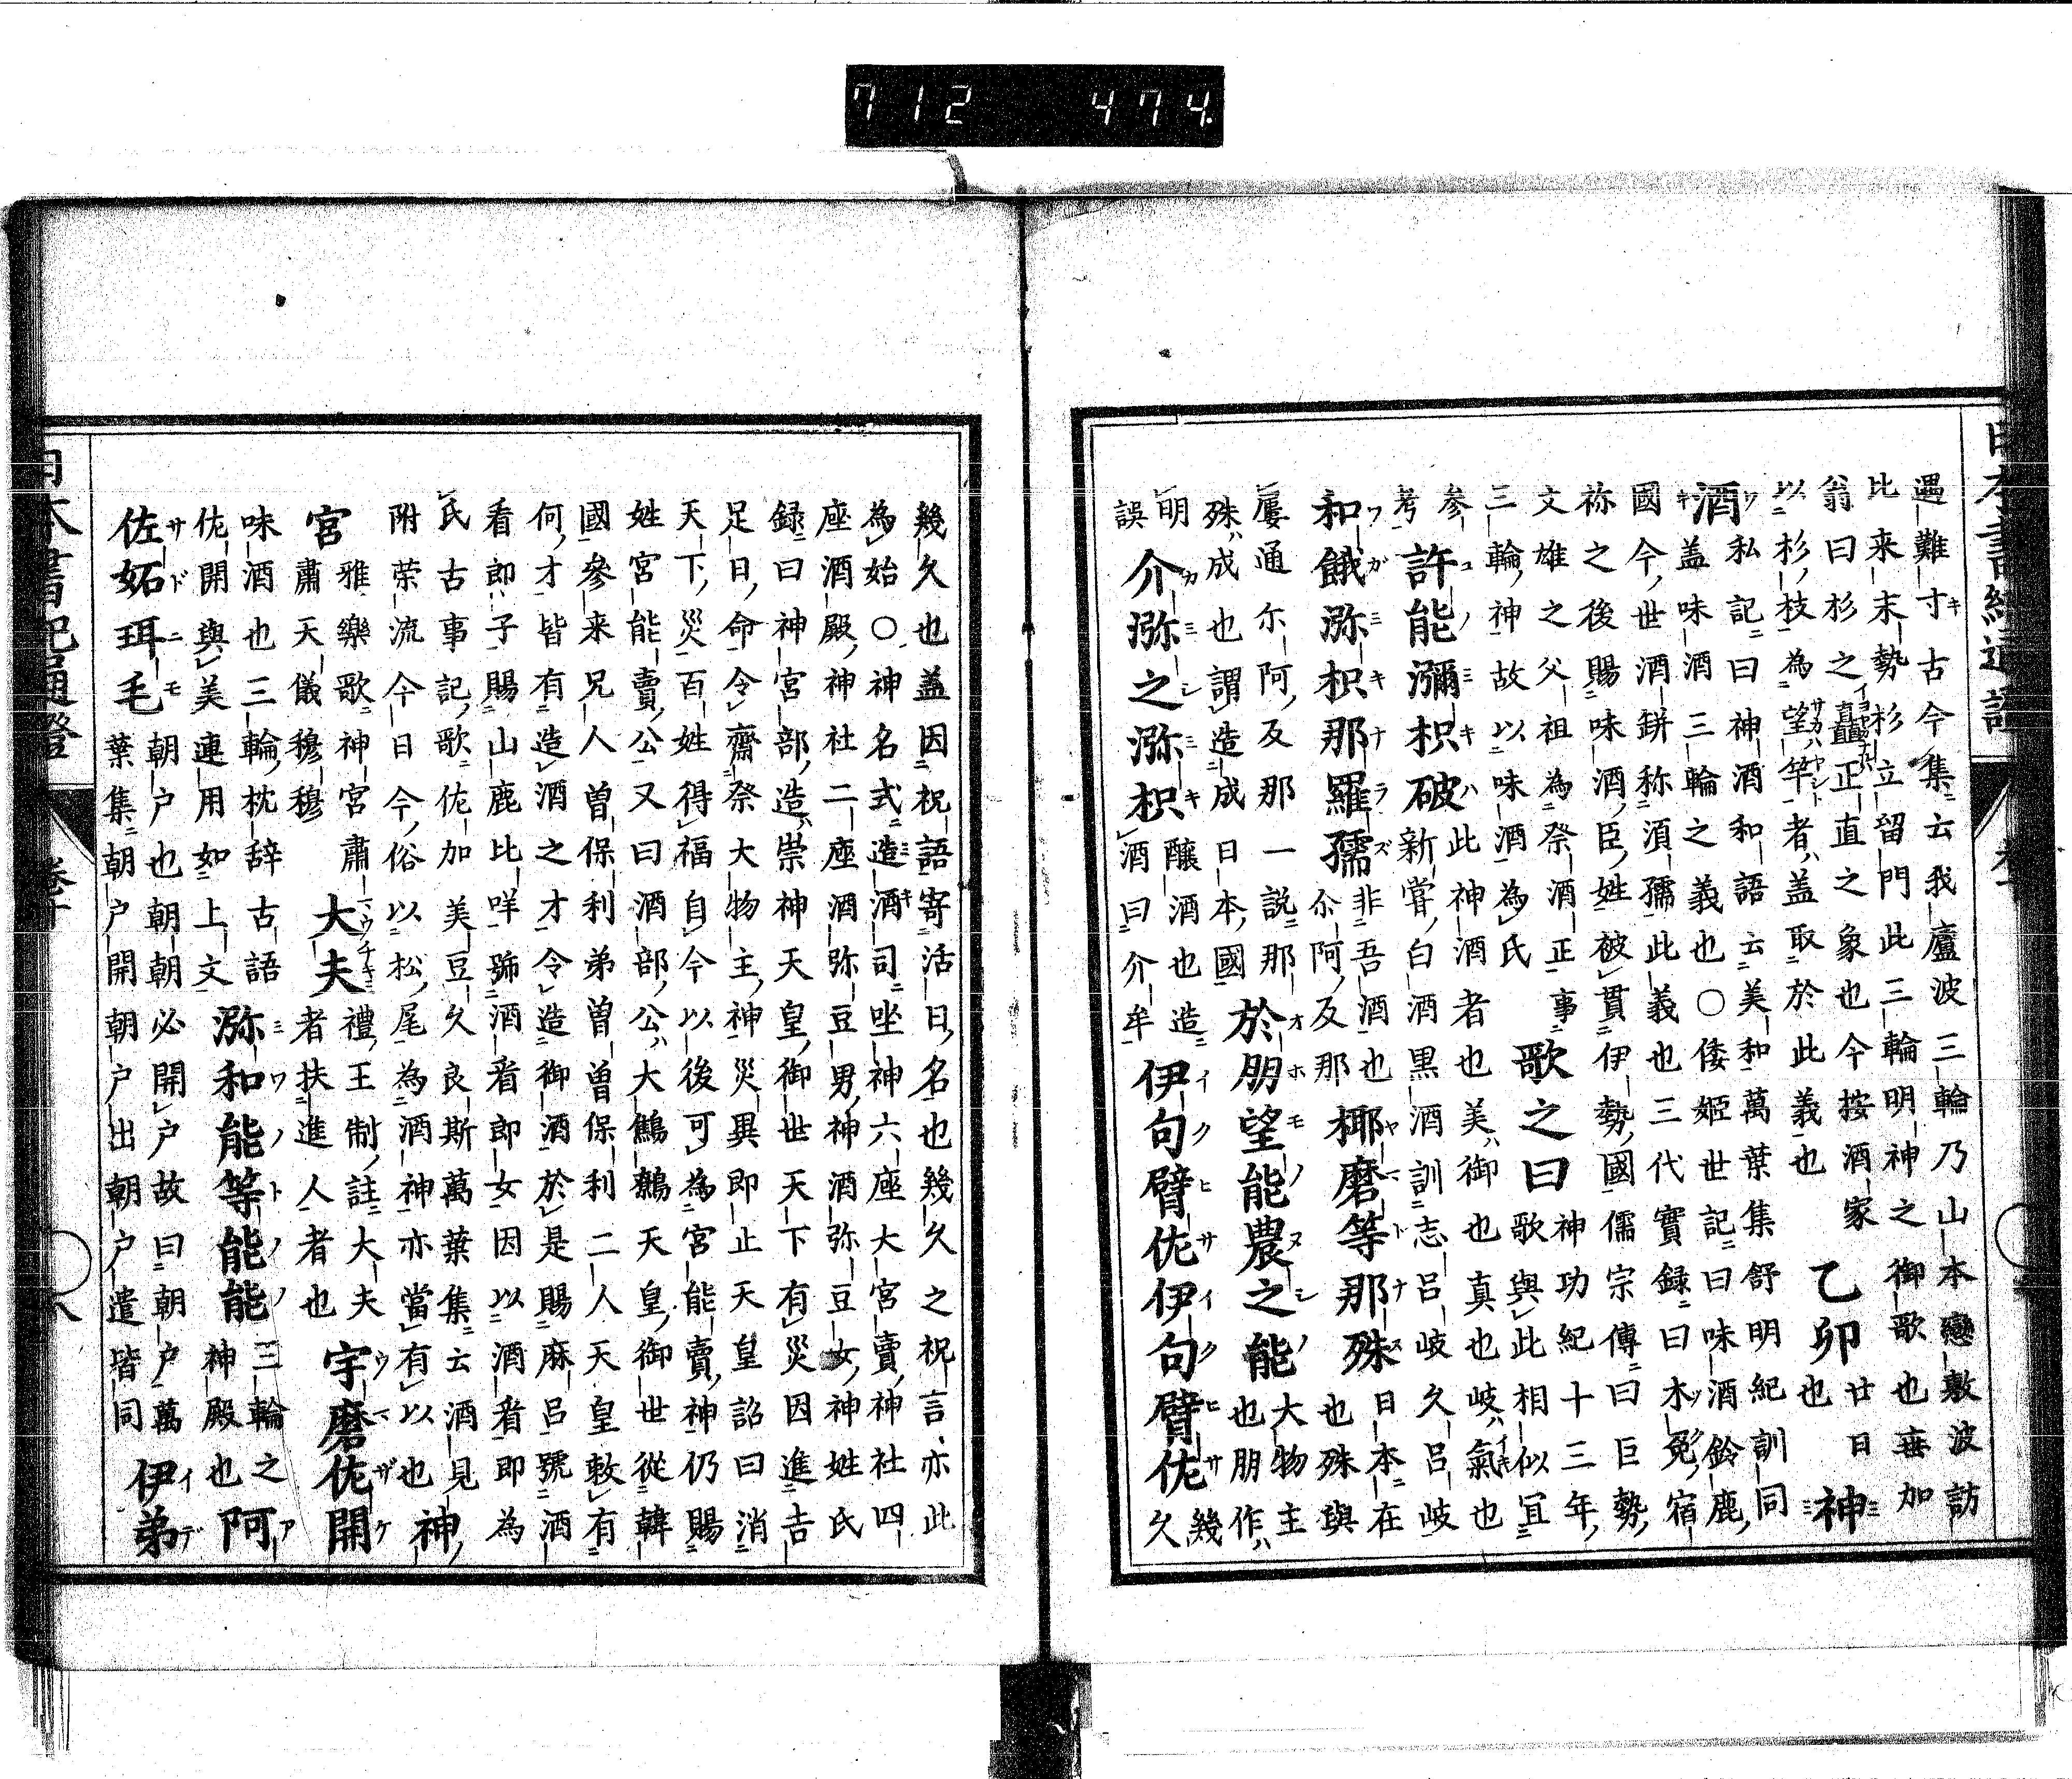 712 474.
遇難寸古今集云我廬波三輪乃山本戀敷波訪
比来末勢杉立留門此三輪明神之御歌也無加
翁曰杉之直正直之象也今按酒家
以杉枝為望竿者蓋取於此義也
乙卯
廿日也
神酒
私記曰神酒和語云美和萬葉集舒明紀訓同
盖味酒三輪之義也○倭姬世記曰味酒鈴鹿
國今世酒缾称須孺此義也三代實録曰木免宿
祢之後賜味酒臣姓被貫伊勢國儒宗傳曰巨勢
文雄之父祖為祭酒正事
三輪神故以味酒為氏
歌之曰
神功紀十三年
歌與此相似冝
参考
許能瀰枳破
此神酒者也美御也真也岐氣也
新甞白酒黒酒訓志呂岐久呂岐
和餓瀰枳那羅孺
非吾酒也
尒阿反那
椰磨等那殊
日本在也殊與
屢通尔阿反那一説那
殊成也謂造成日本國
於朋望能農之能
大物主
也朋作
明誤
介瀰之瀰枳
釀酒也造
酒曰介牟
伊句臂佐伊句臂佐
幾久
幾久也盖因祝語寄活日名也幾久之祝言亦此
為始○神名式造酒司坐神六座大宮賣神社四
座酒殿神社二座酒弥豆男神酒弥豆女神姓氏
録曰神宮部造崇神天皇御世天下有災因進吉
足日命令齋祭大物主神災異即止天皇詔曰消
天下災百姓得福自今以後可為宮能賣神仍賜
姓宮能賣公又曰酒部公大鷦鷯天皇御世從韓
國参来兄人曽保利弟曽曽保利二人天皇敕有
何才皆有造酒之才令造御酒於是賜麻呂號酒
看郎子賜山鹿比咩號酒看郎女因以酒看郎為
氏古事記歌佐加美豆久良斯萬葉集云酒見
附荣流今日今俗以松尾為酒神亦當有以也
神宮
雅樂歌神宮肅
肅天儀穆穆
大夫
禮王制註大夫
者扶進人者也
宇磨佐開
味酒也三輪枕辞古語
佐開與美連用如上文
瀰和能等能能
三輪之
神殿也
阿佐妬珥毛
朝戸也朝朝必開戸故曰朝戸萬
葉集朝戸開朝戸出朝戸遣皆同
伊弟